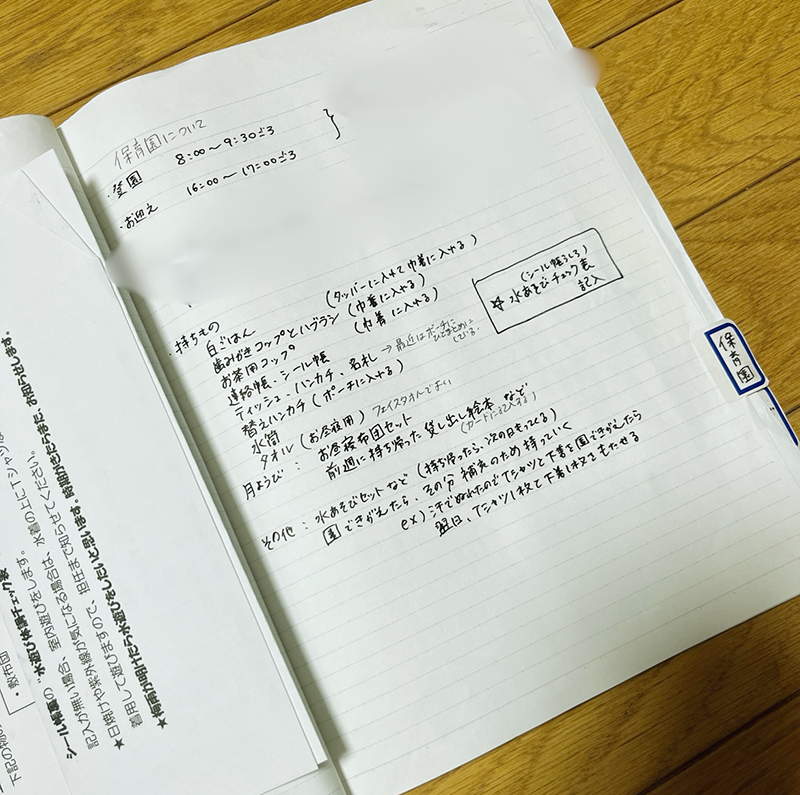 保育園について
・登園 8:00〜9:30ごろ
・お迎え 16:00〜17:00ごろ
・持ちもの
白ごはん (タッパーに入れて巾着に入れる)
歯みがきコップとハブラシ (巾着に入れる)
お茶用コップ (巾着に入れる)
連絡帳、シール帳
ティッシュ、ハンカチ、名札 → 最近はポーチに
ひとまとめに
している。
替えハンカチ (ポーチに入れる)
水筒
タオル (お昼寝用) フェイスタオルでよい
月ようび: お昼寝布団セット
前週に持ち帰った貸し出し絵本など
(カードに記入する)
その他: 水あそびセットなど (持ち帰ったら、次の日もってくる)
園できがえたら、その分 補充のため持っていく
ex) 汗でぬれたのでTシャツと下着を園できがえたら
翌日、Tシャツ1枚と下着1枚をもたせる
(シール帳うしろ)
☆水あそびチェック表
記入
保育園
下記の物
・敷布団
シール帳裏の“水遊び体調チェック表
記入が無い場合、室内遊びをします。
★日焼けや紫外線が気になる場合は、水着の上にTシャツは
着用して遊びますので、担任まで知らせてください。
★梅雨が明けたら水遊びをしたいと思います。時期がきたらまた、お知らせします。